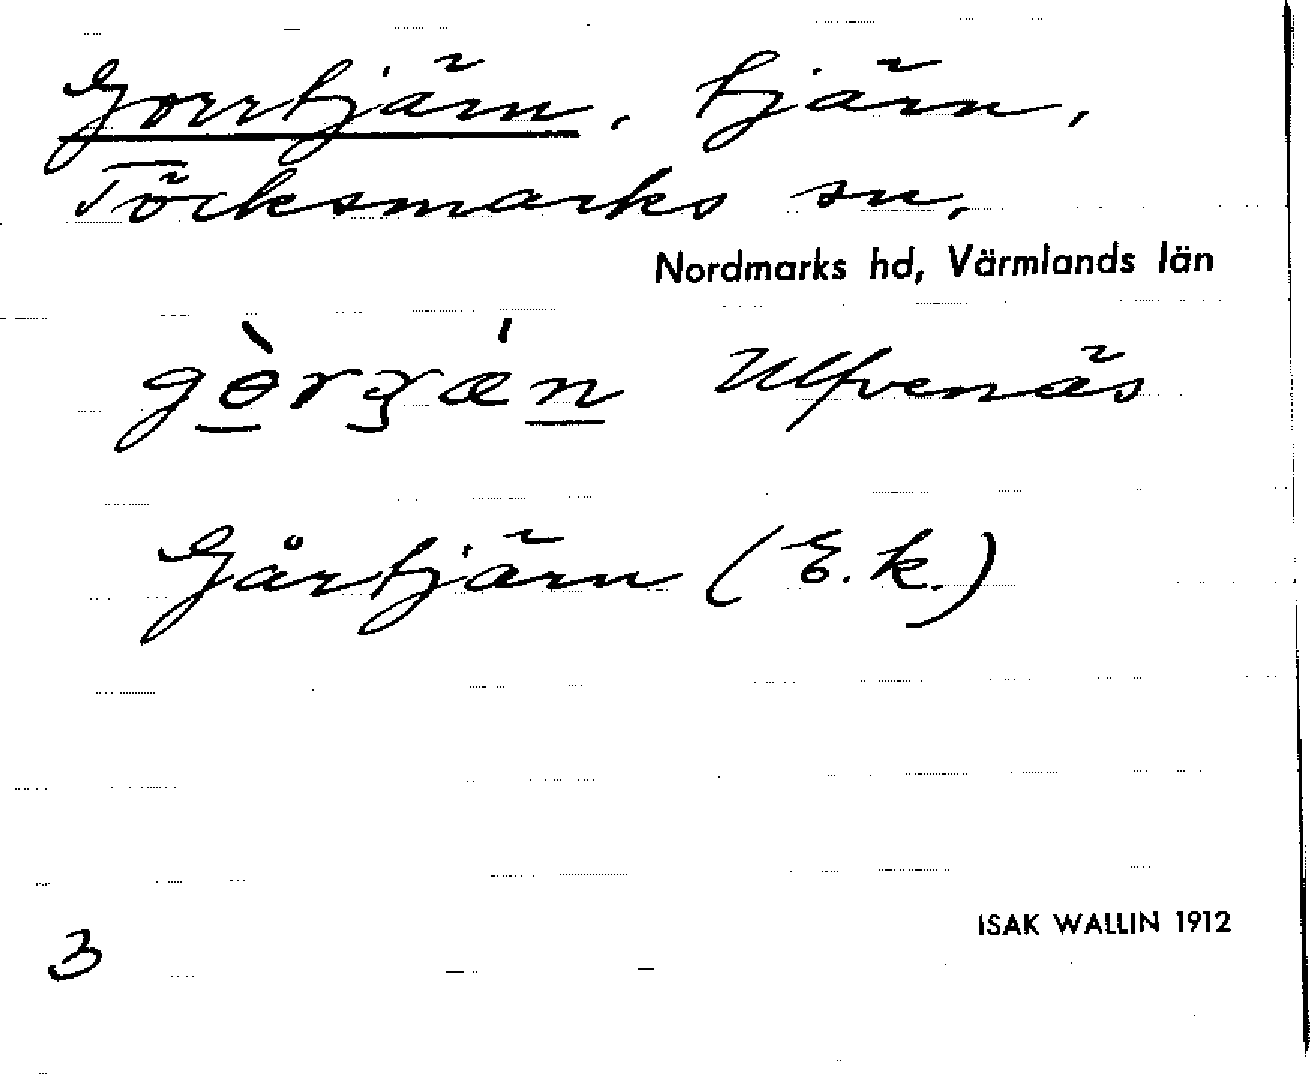 Gorrtjärn. tjärn,
Töcksmarks sn,
Nordmarks hd, Värmlands län
Ulfvenäs
Gårtjärn (E.k.)
3
ISAK WALLIN 1912